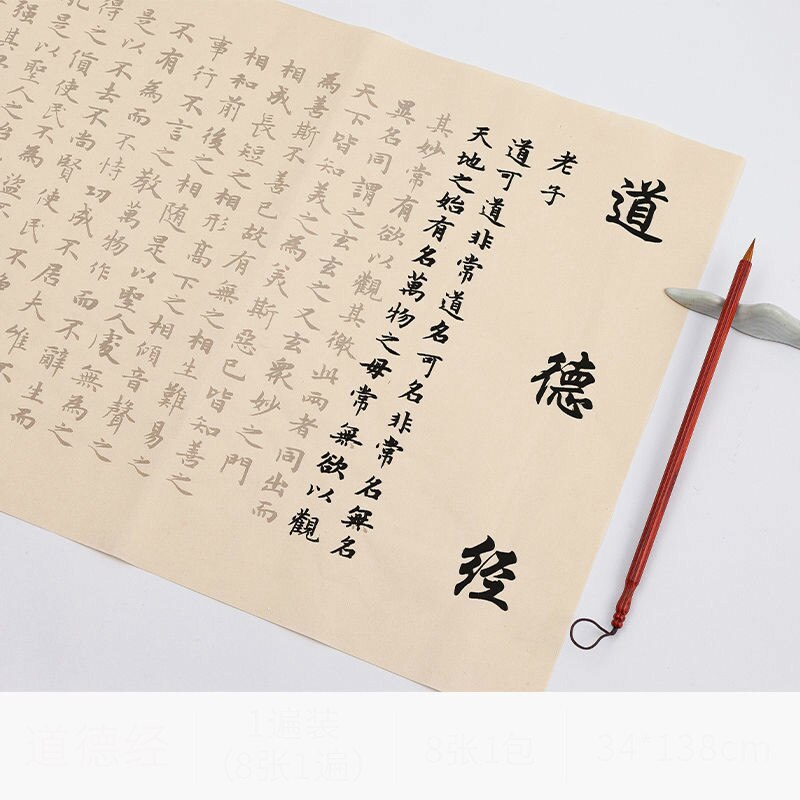 道德经
老子
道可道非常道名可名非常名無名
天地之始有名萬物之母常無欲以觀
其妙常有欲以觀其徼此兩者同出而
異名同謂之玄玄之又玄衆妙之門
天下皆知美之為美斯惡已皆知善之
為善斯不善已故有無之相生難易之
相成長短之相形高下之相傾音聲之
相和前後之相随是以聖人處無為之
事行不言之教萬物作而不辭生而
不有為而不恃功成不居夫唯不
是以不去不尚賢使民
得之貨使民不為盜不
是以聖人之治
强其
道德经
1遍装
(8张1遍)
8张1包
34*138cm